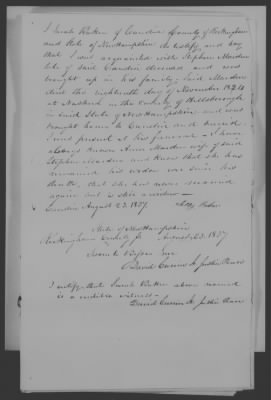 I Sarah of Candia County of Rockingham
and State of New Hampshire do testify and say
that I was acquainted with Stephen Marden
late of said Candia deceased and was
brought up in his family; said Marden
died the eighteenth day of November 1826
at Nashua in the County of Hillsborough
in said State of New Hampshire and was
brought home to Candia and buried
I was present at his funeral I have
always known Anna Marden wife of said
Stephen Marden and know that she has
remained his widow ever since his
death, that she has never married
again but is still a widow
Candia August 23. 1837.
State of New Hampshire
Rockingham County ss August 23. 1837
Sworn to Before me
David Justice Peace
I certify that Sarah above named
is a credible witness
David Justice Peace